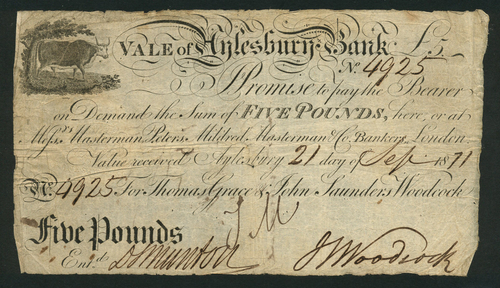 VALE of Aylesbury Bank £5
No. 4925
I Promise to pay the Bearer
on Demand the Sum of FIVE POUNDS, here, or at
Messrs. Masterman Peters, Mildred, Masterman & Co. Bankers, London
Value received Aylesbury 21 day of Sep 1811
No. 4925 For Thomas Grace & John Saunders Woodcock
J M
Five Pounds
Entd. JS Woodcock